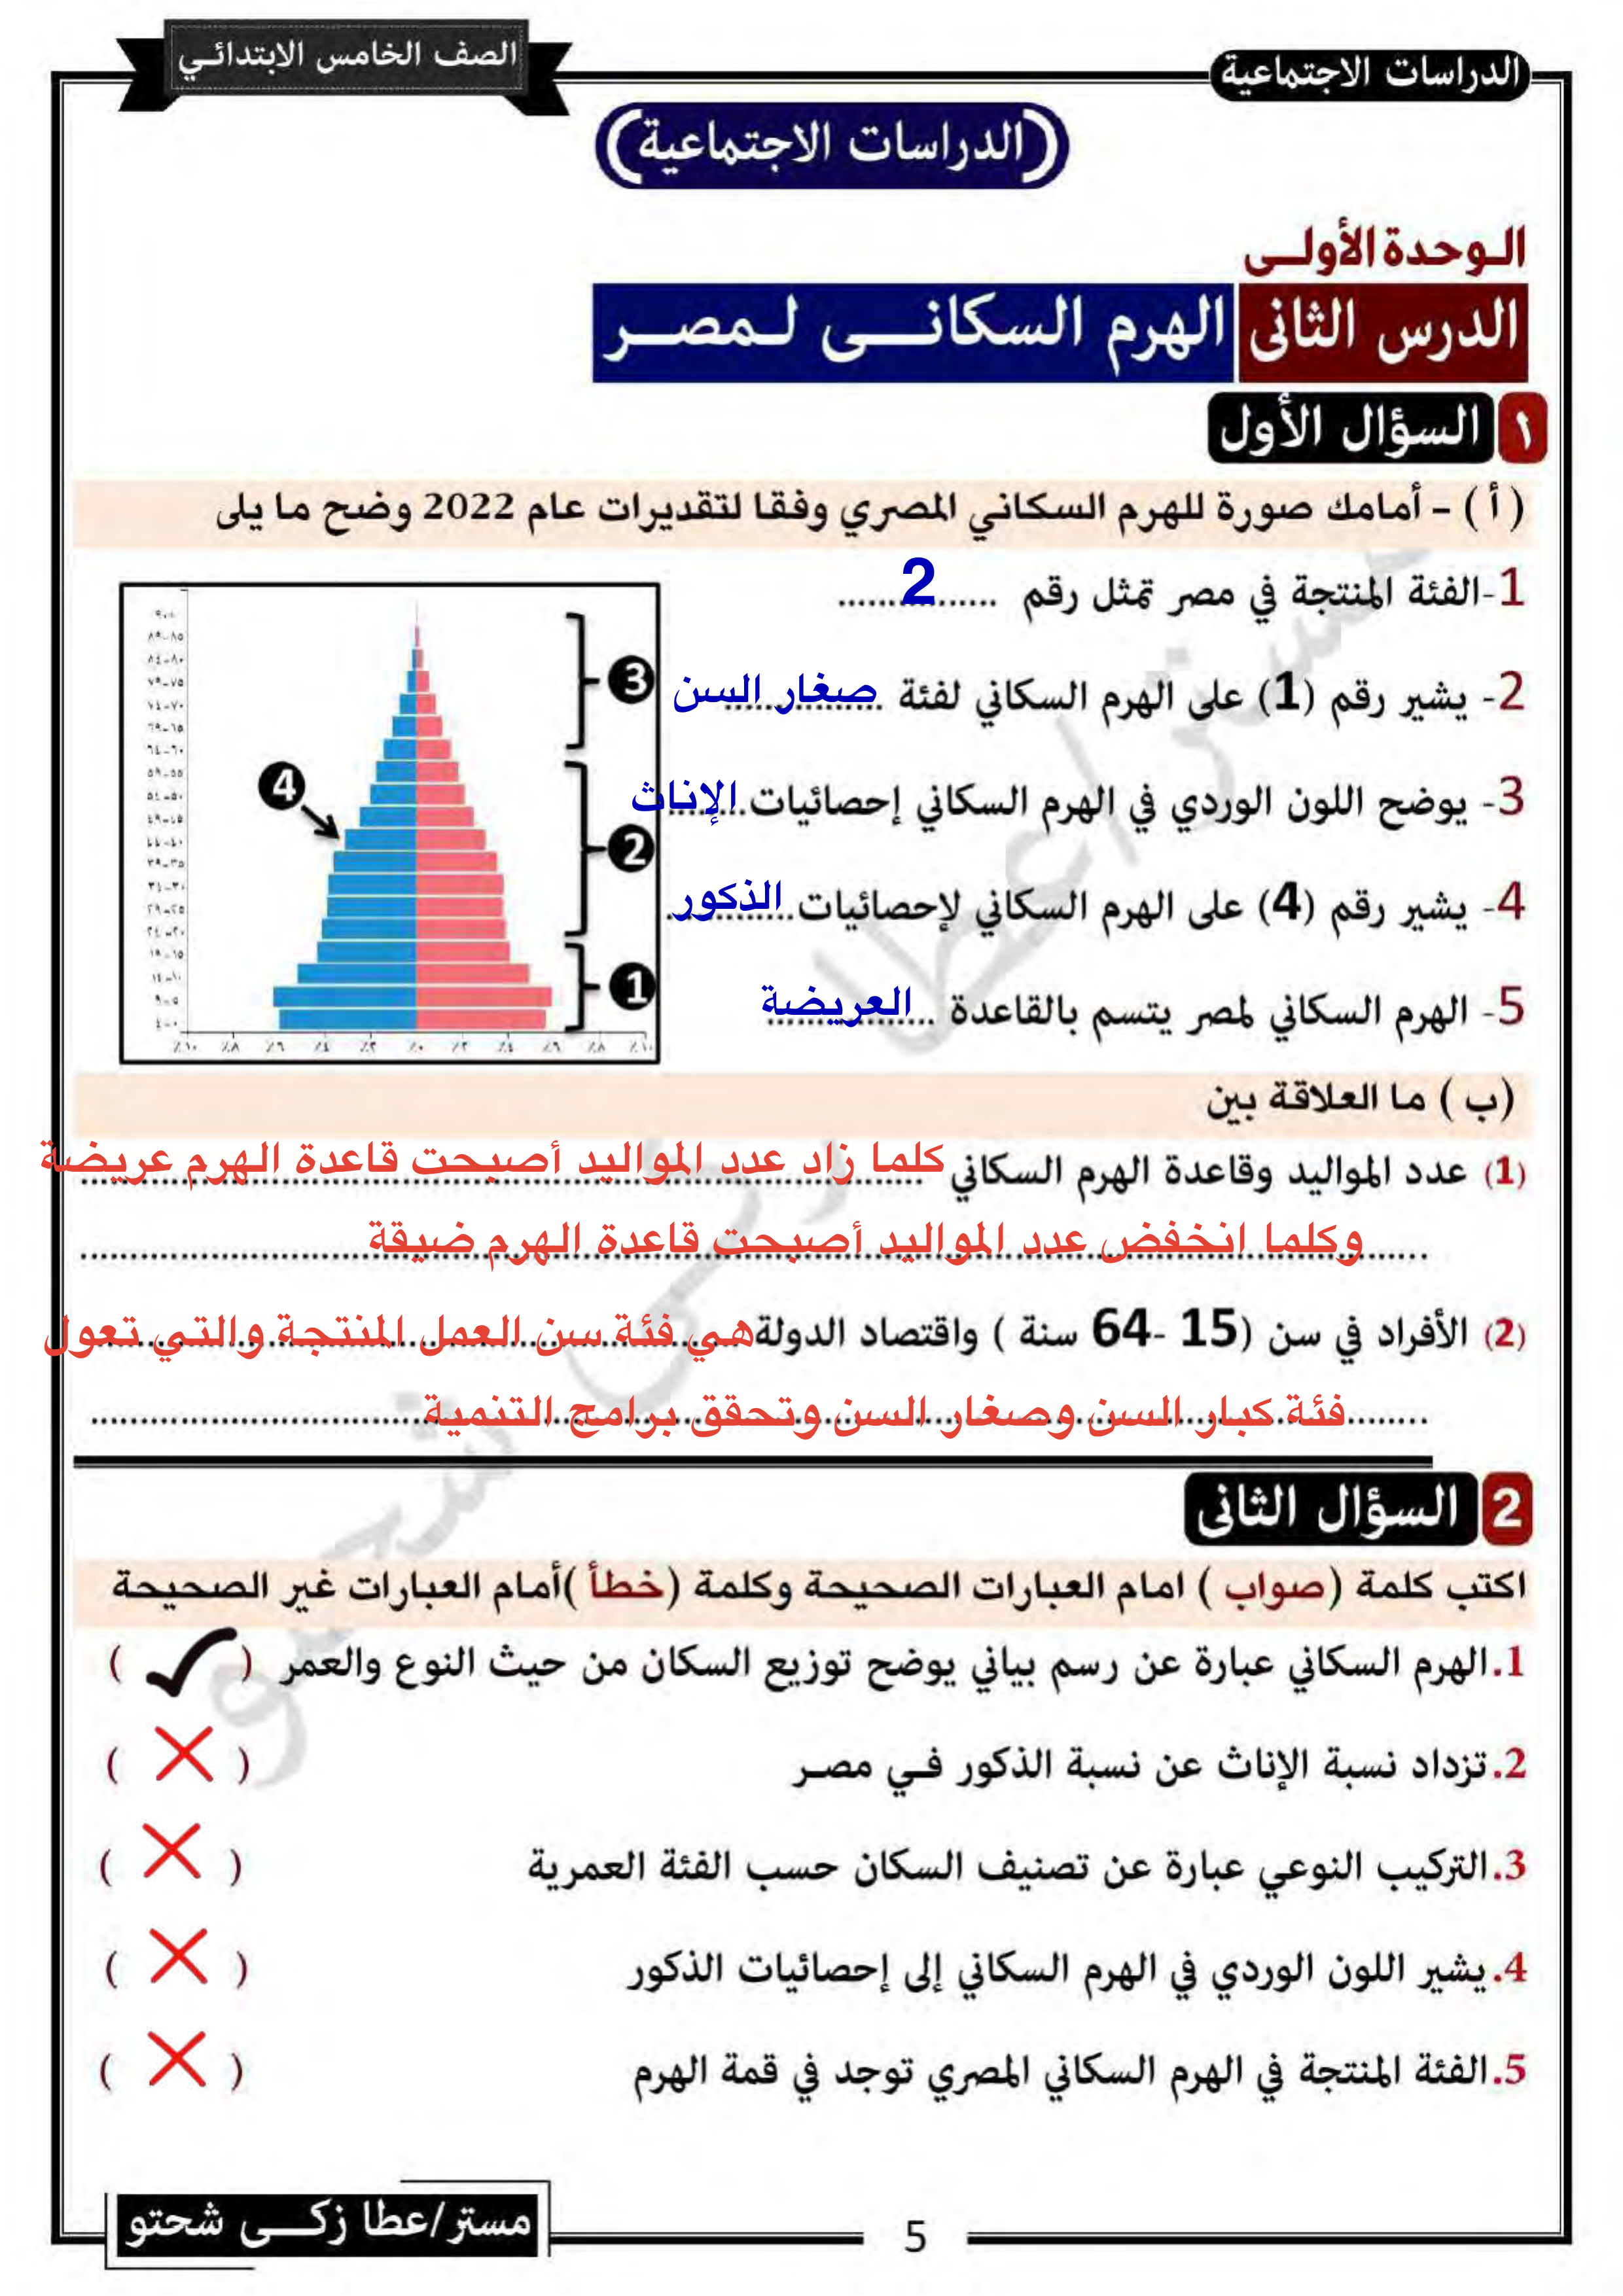 الدراسات الاجتماعية
الصف الخامس الابتدائي
(الدراسات الاجتماعية)
الوحدة الأولى
الدرس الثانى الهرم السكانى لمصر
١ السؤال الأول
( أ ) - أمامك صورة للهرم السكاني المصري وفقا لتقديرات عام 2022 وضح ما يلى
1-الفئة المنتجة في مصر تمثل رقم ......2......
2- يشير رقم (1) على الهرم السكاني لفئة صغار السن
3- يوضح اللون الوردي في الهرم السكاني إحصائيات الإناث
4- يشير رقم (4) على الهرم السكاني لإحصائيات الذكور
5- الهرم السكاني لمصر يتسم بالقاعدة العريضة
+٩٠
٨٩-٨٥
٨٤-٨٠
٧٩-٧٥
٧٤-٧٠
٦٩-٦٥
٦٤-٦٠
٥٩-٥٥
٥٤-٥٠
٤٩-٤٥
٤٤-٤٠
٣٩-٣٥
٣٤-٣٠
٢٩-٢٥
٢٤-٢٠
١٩-١٥
١٤-١٠
٩-٥
٤-٠
٪١٠ ٪٨ ٪٦ ٪٤ ٪٢ ٪٠ ٪٢ ٪٤ ٪٦ ٪٨ ٪١٠
3
4
2
1
(ب ) ما العلاقة بين
(1) عدد المواليد وقاعدة الهرم السكاني كلما زاد عدد المواليد أصبحت قاعدة الهرم عريضة
وكلما انخفض عدد المواليد أصبحت قاعدة الهرم ضيقة
(2) الأفراد في سن (15 -64 سنة ) واقتصاد الدولة هي فئة سن العمل المنتجة والتي تعول
فئة كبار السن وصغار السن وتحقق برامج التنمية
2 السؤال الثانى
اكتب كلمة (صواب ) امام العبارات الصحيحة وكلمة (خطأ )أمام العبارات غير الصحيحة
1.الهرم السكاني عبارة عن رسم بياني يوضح توزيع السكان من حيث النوع والعمر ( ✓ )
2.تزداد نسبة الإناث عن نسبة الذكور في مصر ( ✗ )
3.التركيب النوعي عبارة عن تصنيف السكان حسب الفئة العمرية ( ✗ )
4.يشير اللون الوردي في الهرم السكاني إلى إحصائيات الذكور ( ✗ )
5.الفئة المنتجة في الهرم السكاني المصري توجد في قمة الهرم ( ✗ )
مستر/عطا زكى شحتو
5
مستر/عطا زكى شحتو